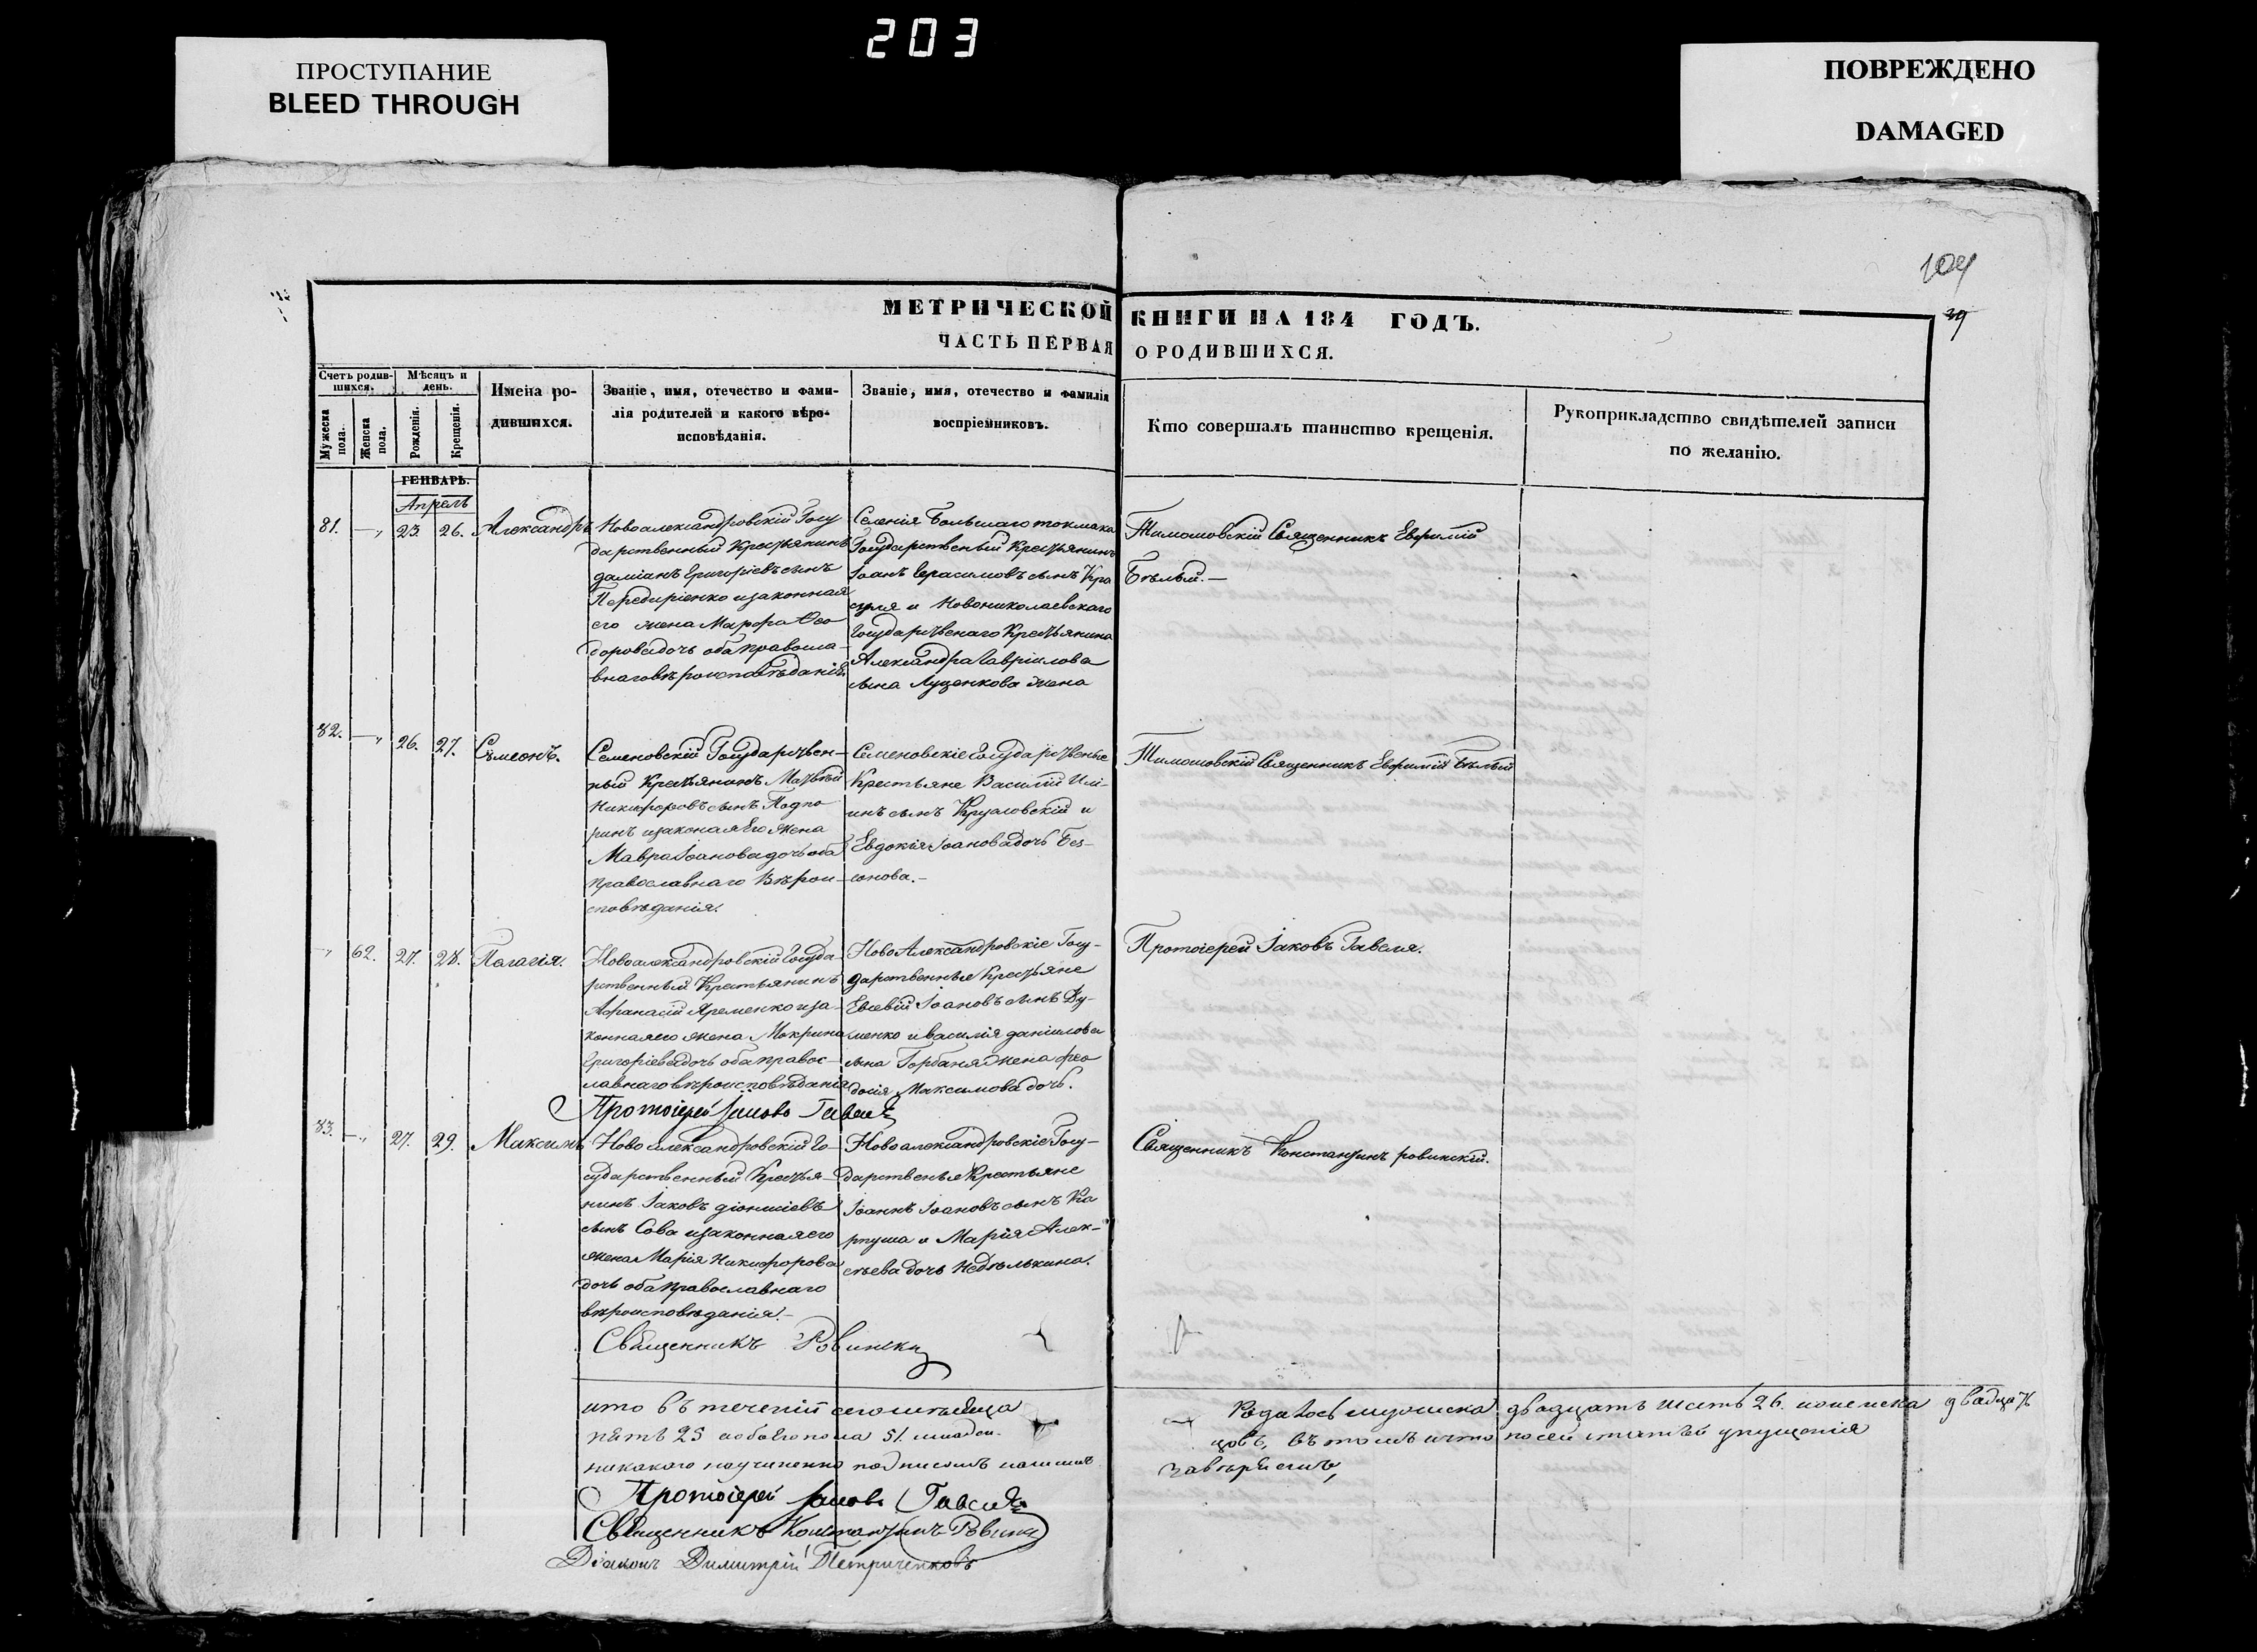 203
ПРОСТУПАНИЕ
BLEED THROUGH
ПОВРЕЖДЕНО
DAMAGED
104
39
МЕТРИЧЕСКОЙ КНИГИ НА 184 ГОДЪ.
ЧАСТЬ ПЕРВАЯ О РОДИВШИХСЯ.
Счетъ родив-
шихся.
Мужеска пола.
Женска пола.
Мѣсяцъ и
день.
Рожденія.
Крещенія.
Имена ро-
дившихся.
Званіе, имя, отечество и фами-
лія родителей и какого вѣро-
исповѣданія.
Званіе, имя, отечество и фамилія
воспріемниковъ.
Кто совершалъ таинство крещенія.
Рукоприкладство свидѣтелей записи
по желанію.
ГЕНВАРЬ.
Апрель
81. — „ 23. 26. Александръ
Новоалександровскій Госу
дарственный Крестьянинъ
даміанъ Григоріевъ сынъ
изаконная
его жена Марфа Ѳео
дорова дочь оба правосла-
внаго вѣроисповѣданія
Селенія Большаго токмака
Государственый Крестьянинъ
Іоанъ Герасимовъ сынъ Кра
суля и Новониколаевскаго
Государственаго Крестьянина
Александра Гавріилова
сына Луценкова жена
Тимошовскій Священникъ Евфимій
Бѣлый.—
82. — „ 26. 27. Симеонъ.
Семеновскій Государствен-
ный Крестьянинъ Матвѣй
Никифоровъ сынъ Подпо
ринъ изаконая Его жена
Мавра Іоанова дочь оба
православнаго Вѣрои-
сповѣданія.
Семеновскіе Государственые
Крестьяне Василій Илі-
инъ сынъ Кругловскій и
Евдокія Іоанова дочь Без-
сонова.-
Тимошовскій Священникъ Евфимій Бѣлый
„ 62. 27. 28. Палагія.
Новоалександровскій Госуда-
рственный Крестьянинъ
Афанасій Яременко иза-
конная его жена Макрина
Григоріева дочь оба правос-
лавнаго вѣроисповѣданія
НовоАлександровскіе Госу-
дарственные Крестьяне
Евсевій Іоановъ сынъ Ду-
менко и василія даніилова
сына Горбаня жена фео
досія Максимова дочь.
Протоіерей Іаковъ Гавеля.
Протоіерей Іаковъ Гавеля
83. — „ 27. 29. Максимъ
Новоалександровскій Го-
сударственный Крестья-
нинъ Іаковъ діонисіевъ
сынъ Сова изаконная его
жена Марія Никифорова
дочь оба православнаго
вѣроисповѣданія.-
Новоалександровскіе Госу-
дарственые Крестьяне
Іоаннъ Іоановъ сынъ Ка
рпуша и Марія Алек-
сѣева дочь Недѣлькина.
Священникъ Константинъ ровинскій.
Священникъ Ровинскій
что въ теченіи сего мѣсяца родилось мужеска двадцать шесть 26. иженска двадцать
пять 25 аобоего пола 51. младен- цовъ, въ томъ ичто посей статьи упущенія
никакого неучиненно подписомъ нашимъ завѣряемъ,
Протоіерей Іаковъ Гавеля
Священникъ Константинъ Ровинскій
Діаконъ Димитрій Петриченковъ